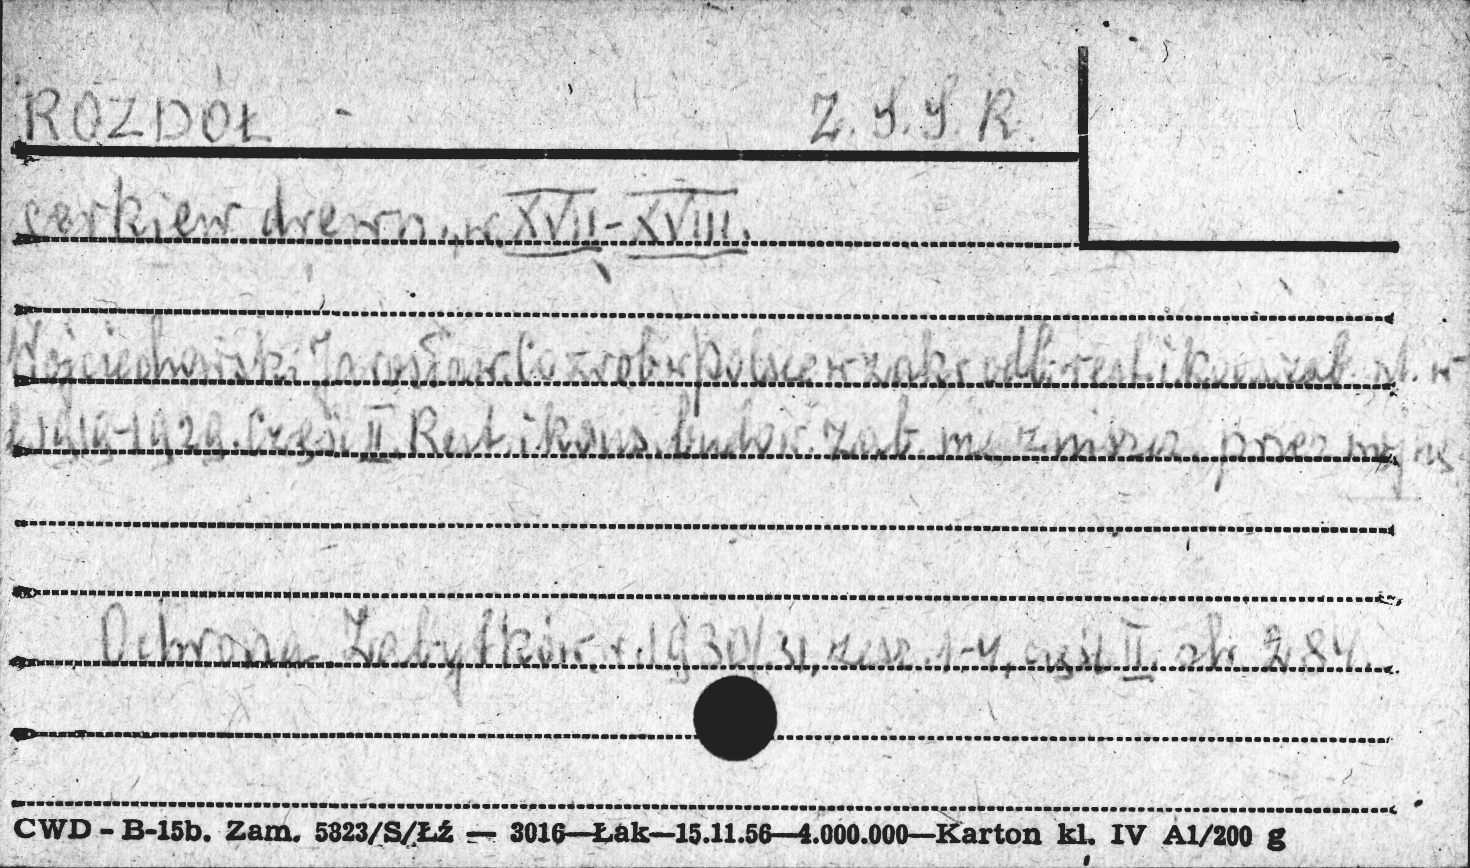 ROZDÓŁ - Z.S.S.R.
cerkiew drewn., w. XVII-XVIII.
Wojciechowski Jarosław. Co zrob. w Polsce w zakr. odb. rest. i kons. zab. szt. w
l. 1919-1929. Część II. Rest. i kons. budow. zab. przez
Ochrona Zabytków r. 1930/31, zesz. 1-4, część II. str. 284.
CWD - B-15b. Zam. 5823/S/Łź — 3016—Łak—15.11.56—4.000.000—Karton kl. IV A1/200 g